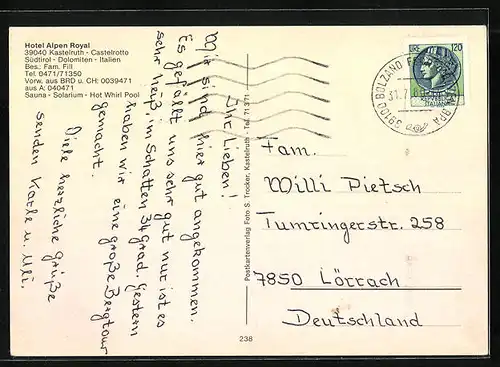 Hotel Alpen Royal
39040 Kastelruth - Castelrotto
Südtirol - Dolomiten - Italien
Bes.: Fam. Fill
Tel. 0471/71350
Vorw. aus BRD u. CH: 0039471
aus A: 040471
Sauna - Solarium - Hot Whirl Pool
Ihr Lieben!
Wir sind hier gut angekommen.
Es gefällt uns sehr gut nur ist es
sehr heiß, im Schatten 34 grad. Gestern
haben wir eine große Bergtour
gemacht.
Viele herzliche Grüße
senden Karle u. Uli.
Postkartenverlag Foto S. Trocker, Kastelruth - Tel. 71371
238
LIRE 120
ITALIANA
39100 BOLZANO
Fam.
Willi Pietsch
Tumringerstr. 258
7850 Lörrach
Deutschland